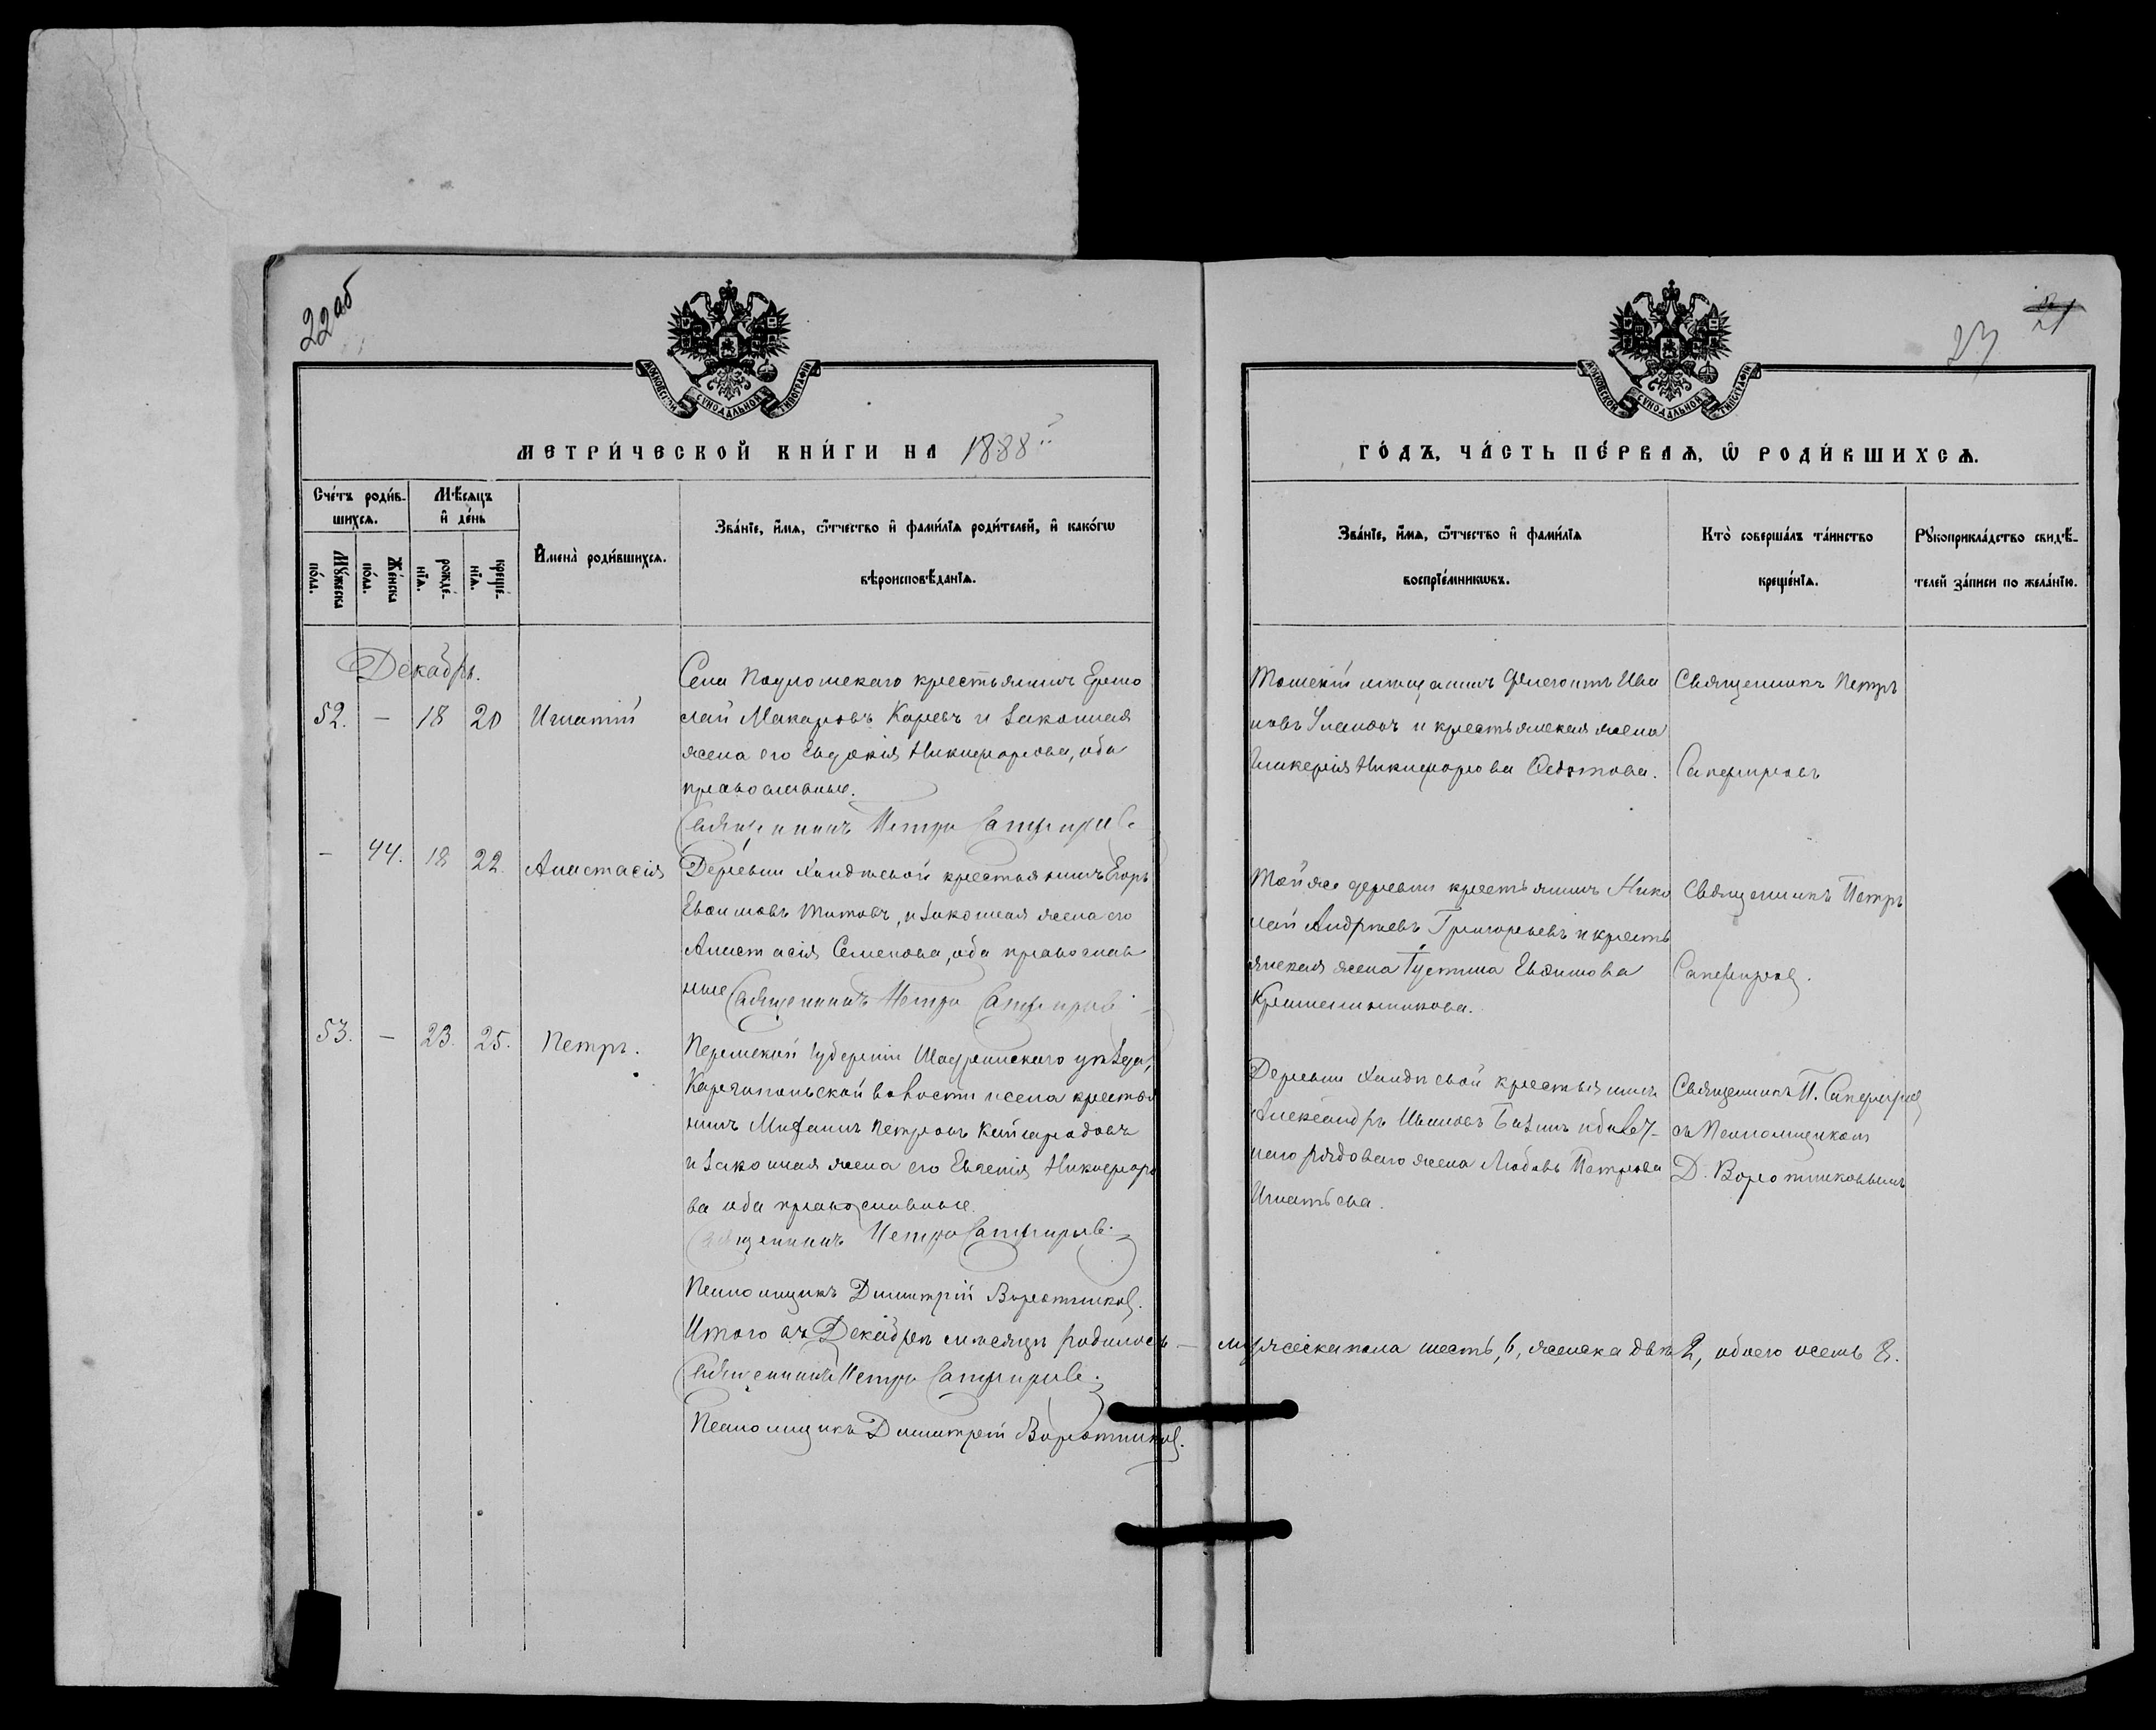 22 об
23
21
МОСКОВСКОЙ СѴНОДАЛЬНОЙ ТИПОГРАФІИ
МОСКОВСКОЙ СѴНОДАЛЬНОЙ ТИПОГРАФІИ
МЕТРИ́ЧЕСКОЙ КНИ́ГИ НА 1888 й
ГО́ДЪ, ЧА́СТЬ ПЕ́РВАѦ, Ѿ РОДИ́ВШИХСѦ.
Сче́тъ роди́в-
шихсѧ.
Мꙋ́жеска по́ла.
Же́нска по́ла.
Мѣ́сѧцъ
и҆ де́нь
рожде́-
нїѧ.
креще́-
нїѧ.
И҆мена̀ роди́вшихсѧ.
Зва́нїе, и҆́мѧ, ѻ҆́тчество и҆ фами́лїѧ роди́телей, и҆ како́гѡ
вѣроисповѣ́данїѧ.
Зва́нїе, и҆́мѧ, ѻ҆́тчество и҆ фами́лїѧ
воспрїе́мникѡвъ.
Кто̀ соверша́лъ та́инство
креще́нїѧ.
Рꙋкоприкла́дство свидѣ́-
телей за́писи по жела́нїю.
Декабрь.
52. — 18 20 Игнатій
Села крестьянинъ Ермо
лай Макаровъ Каревъ и законная
жена его Евдокія Никифорова, оба
православные.
Священникъ Петръ Сапфировъ
мѣщанинъ Флегонтъ Ива
новъ и крестьянская жена
Гликерія Никифорова Федотова.
Священникъ Петръ
Сапфировъ
— 44. 18 22. Анастасія
Деревни крестьянинъ Егоръ
Титовъ, и законная жена его
Анастасія Семенова, оба православ
ные Священникъ Петръ Сапфировъ
Той же деревни крестьянинъ Нико
лай Андреевъ Григорьевъ и кресть
янская жена Іустина
Священникъ Петръ
Сапфировъ.
53. — 23. 25. Петръ.
Пермской губерніи Шадринскаго уѣзда,
Каргапольской волости и села крестья
нинъ Петровъ
и законная жена его Евгенія Никифоро
ва оба православные.
Священникъ Петръ Сапфировъ
Псаломщикъ Димитрій Воротниковъ.
Деревни крестьянинъ
Александръ Ивановъ и
рядоваго жена Любовь Петрова
Игнатьева.
Священникъ П. Сапфировъ
съ Псаломщикомъ
Д. Воротниковымъ
Итого въ Декабрѣ мѣсяцѣ родилось — мужеска пола шесть, 6, женска двѣ 2, обоего осемь 8.
Священникъ Петръ Сапфировъ
Псаломщикъ Димитрій Воротниковъ.